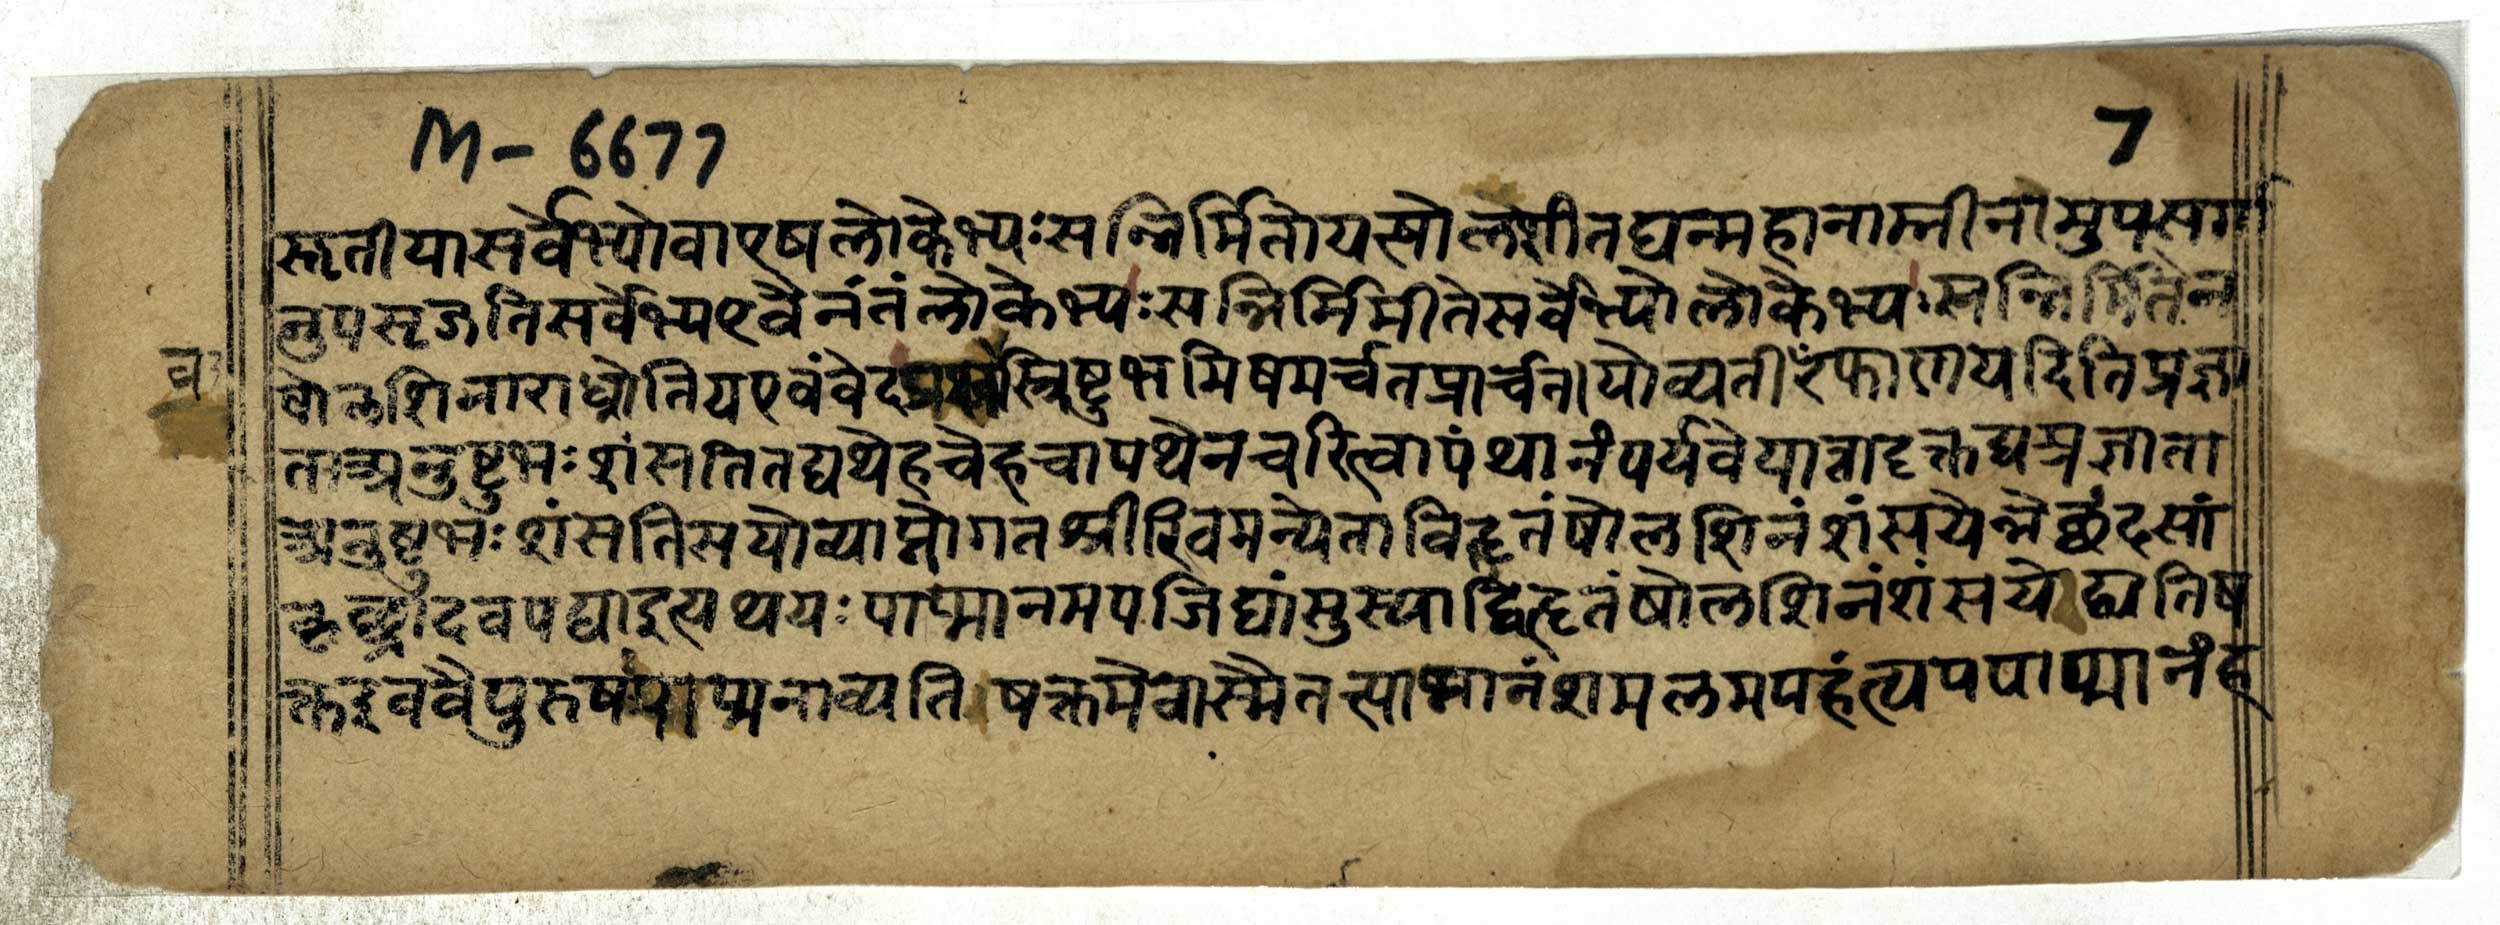 M - 6677
7
स्तृतीयासर्वेभ्योवाएषलोकेभ्यःसन्निर्मितोयत्षोलशीतद्यन्महानाम्नीनामुपसर्गा
नुपसृजतिसर्वेभ्यएवैनंतंलोकेभ्यःसन्निर्मिमीतेसर्वेभ्योलोकेभ्यःसन्निर्मितेन
षोलशिनाराध्नोतियएवंवेदप्रप्रवस्त्रिष्टुभमिषमर्चतप्रार्चत।योव्यतीरँफाणयदितिप्रज्ञा
व
ताअनुष्टुभःशंसतितद्यथेहचेहचापथेनचरित्वापंथानंपर्यवेयात्तादृक्तद्यत्प्रज्ञाता
अनुष्टुभःशंसतिसयोव्याप्तोगतश्रीरिवमन्येताविहृतंषोलशिनंशंसयेन्नेच्छंदसां
कृच्छ्रादवपद्याइत्यथयःपाप्मानमपजिघांसुस्याद्विहृतंषोलशिनंशंसयेद्व्यतिष
क्तइववैपुरुषःपाप्मनाव्यतिषक्तमेवास्मैतत्पाप्मानंशमलमपहंत्यपपाप्मानंह